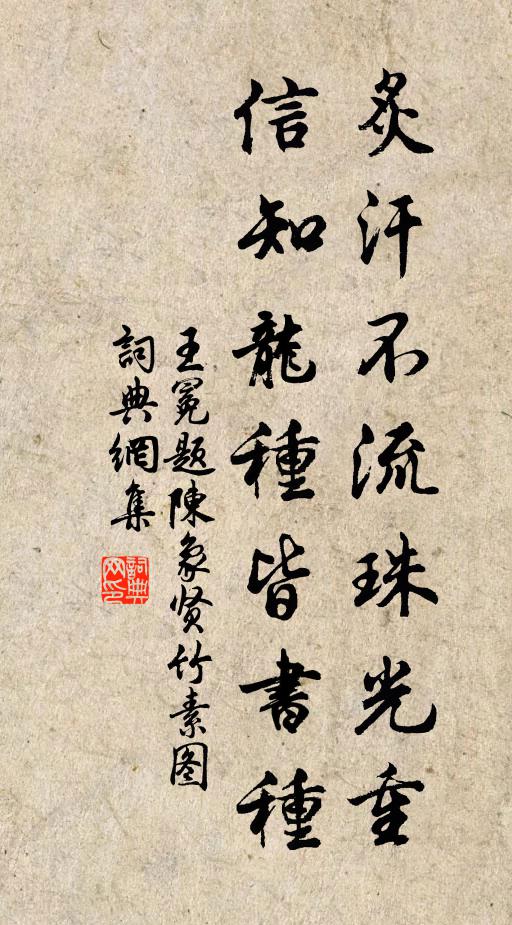 炙汗不流珠光重
信知龍種皆書種
王冕题陳象贤竹素图
詞典網集
詞典網印